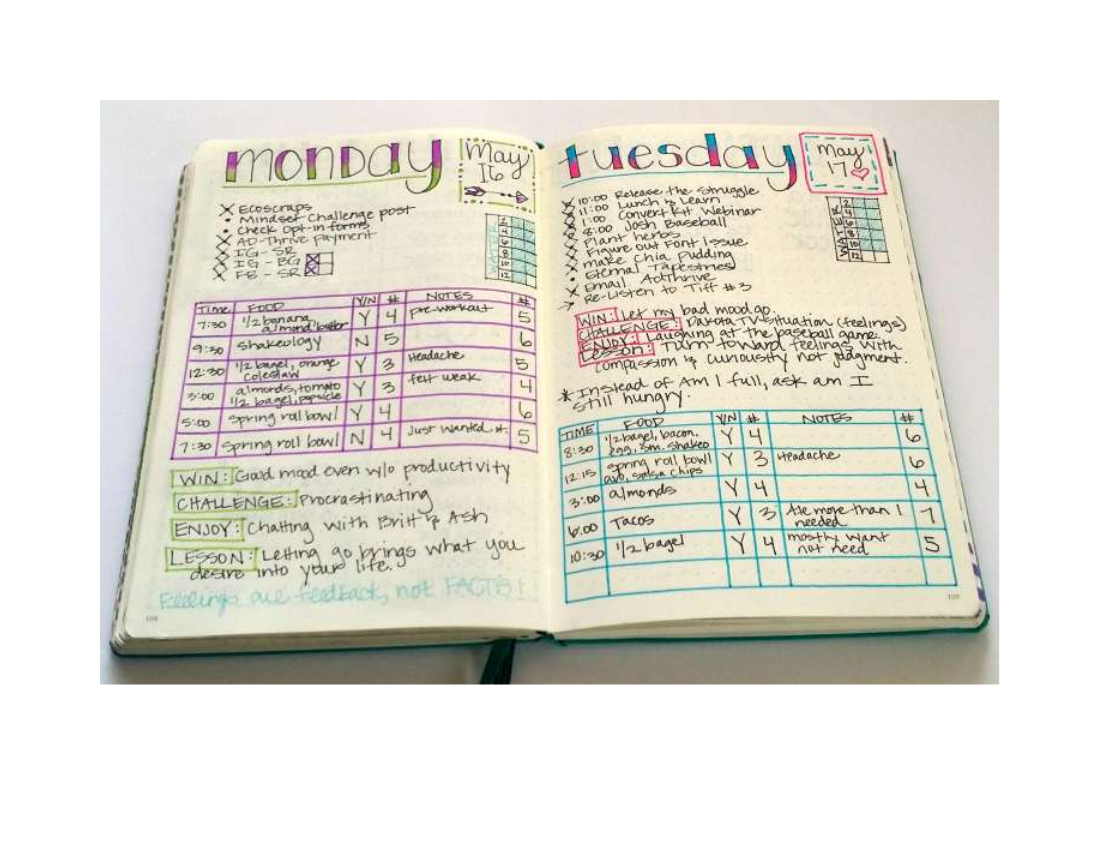 monday
May
16
X Ecoscraps
• Mindset Challenge post
• Check Opt-in forms
X AD-Thrive payment
X IG - SR
X IG - BG
X FB - SR
WATER
2
4
6
8
10
12
TIME FOOD Y/N # NOTES #
7:30 1/2 banana, almond butter Y 4 pre-workout 5
9:30 shakeology N 5 6
12:30 1/2 bagel, orange Y 3 Headache 5
coleslaw
3:00 almonds, tomato Y 3 felt weak 4
1/2 bagel, popsicle
5:00 spring roll bowl Y 4 6
7:30 spring roll bowl N 4 Just wanted it. 5
WIN: Good mood even w/o productivity
CHALLENGE: Procrastinating
ENJOY: Chatting with Britt & Ash
LESSON: Letting go brings what you
desire into your life.
Feelings are feedback, not FACTS!
tuesday
May
17
X 10:00 Release the Struggle
X 11:00 Lunch & Learn
X 1:00 ConvertKit Webinar
X 8:00 Josh Baseball
X Plant herbs
X Figure out Font issue
X make chia pudding
• Eternal Tapestries
X Email AdThrive
→ Re-Listen to Tiff #3
WATER
2
4
6
8
10
12
WIN: Let my bad mood go.
CHALLENGE: Dakota TV situation (feelings)
ENJOY: Laughing at the baseball game.
Lesson: Turn toward feelings with
compassion & curiousity not judgment.
* Instead of Am I full, ask am I
still hungry.
TIME FOOD Y/N # NOTES #
8:30 1/2 bagel, bacon, Y 4 6
egg, sm. shakeo
12:15 spring roll bowl Y 3 Headache 6
avo, salsa chips
3:00 almonds Y 4 4
6:00 Tacos Y 3 Ate more than I 7
needed
10:30 1/2 bagel Y 4 mostly want 5
not need
139